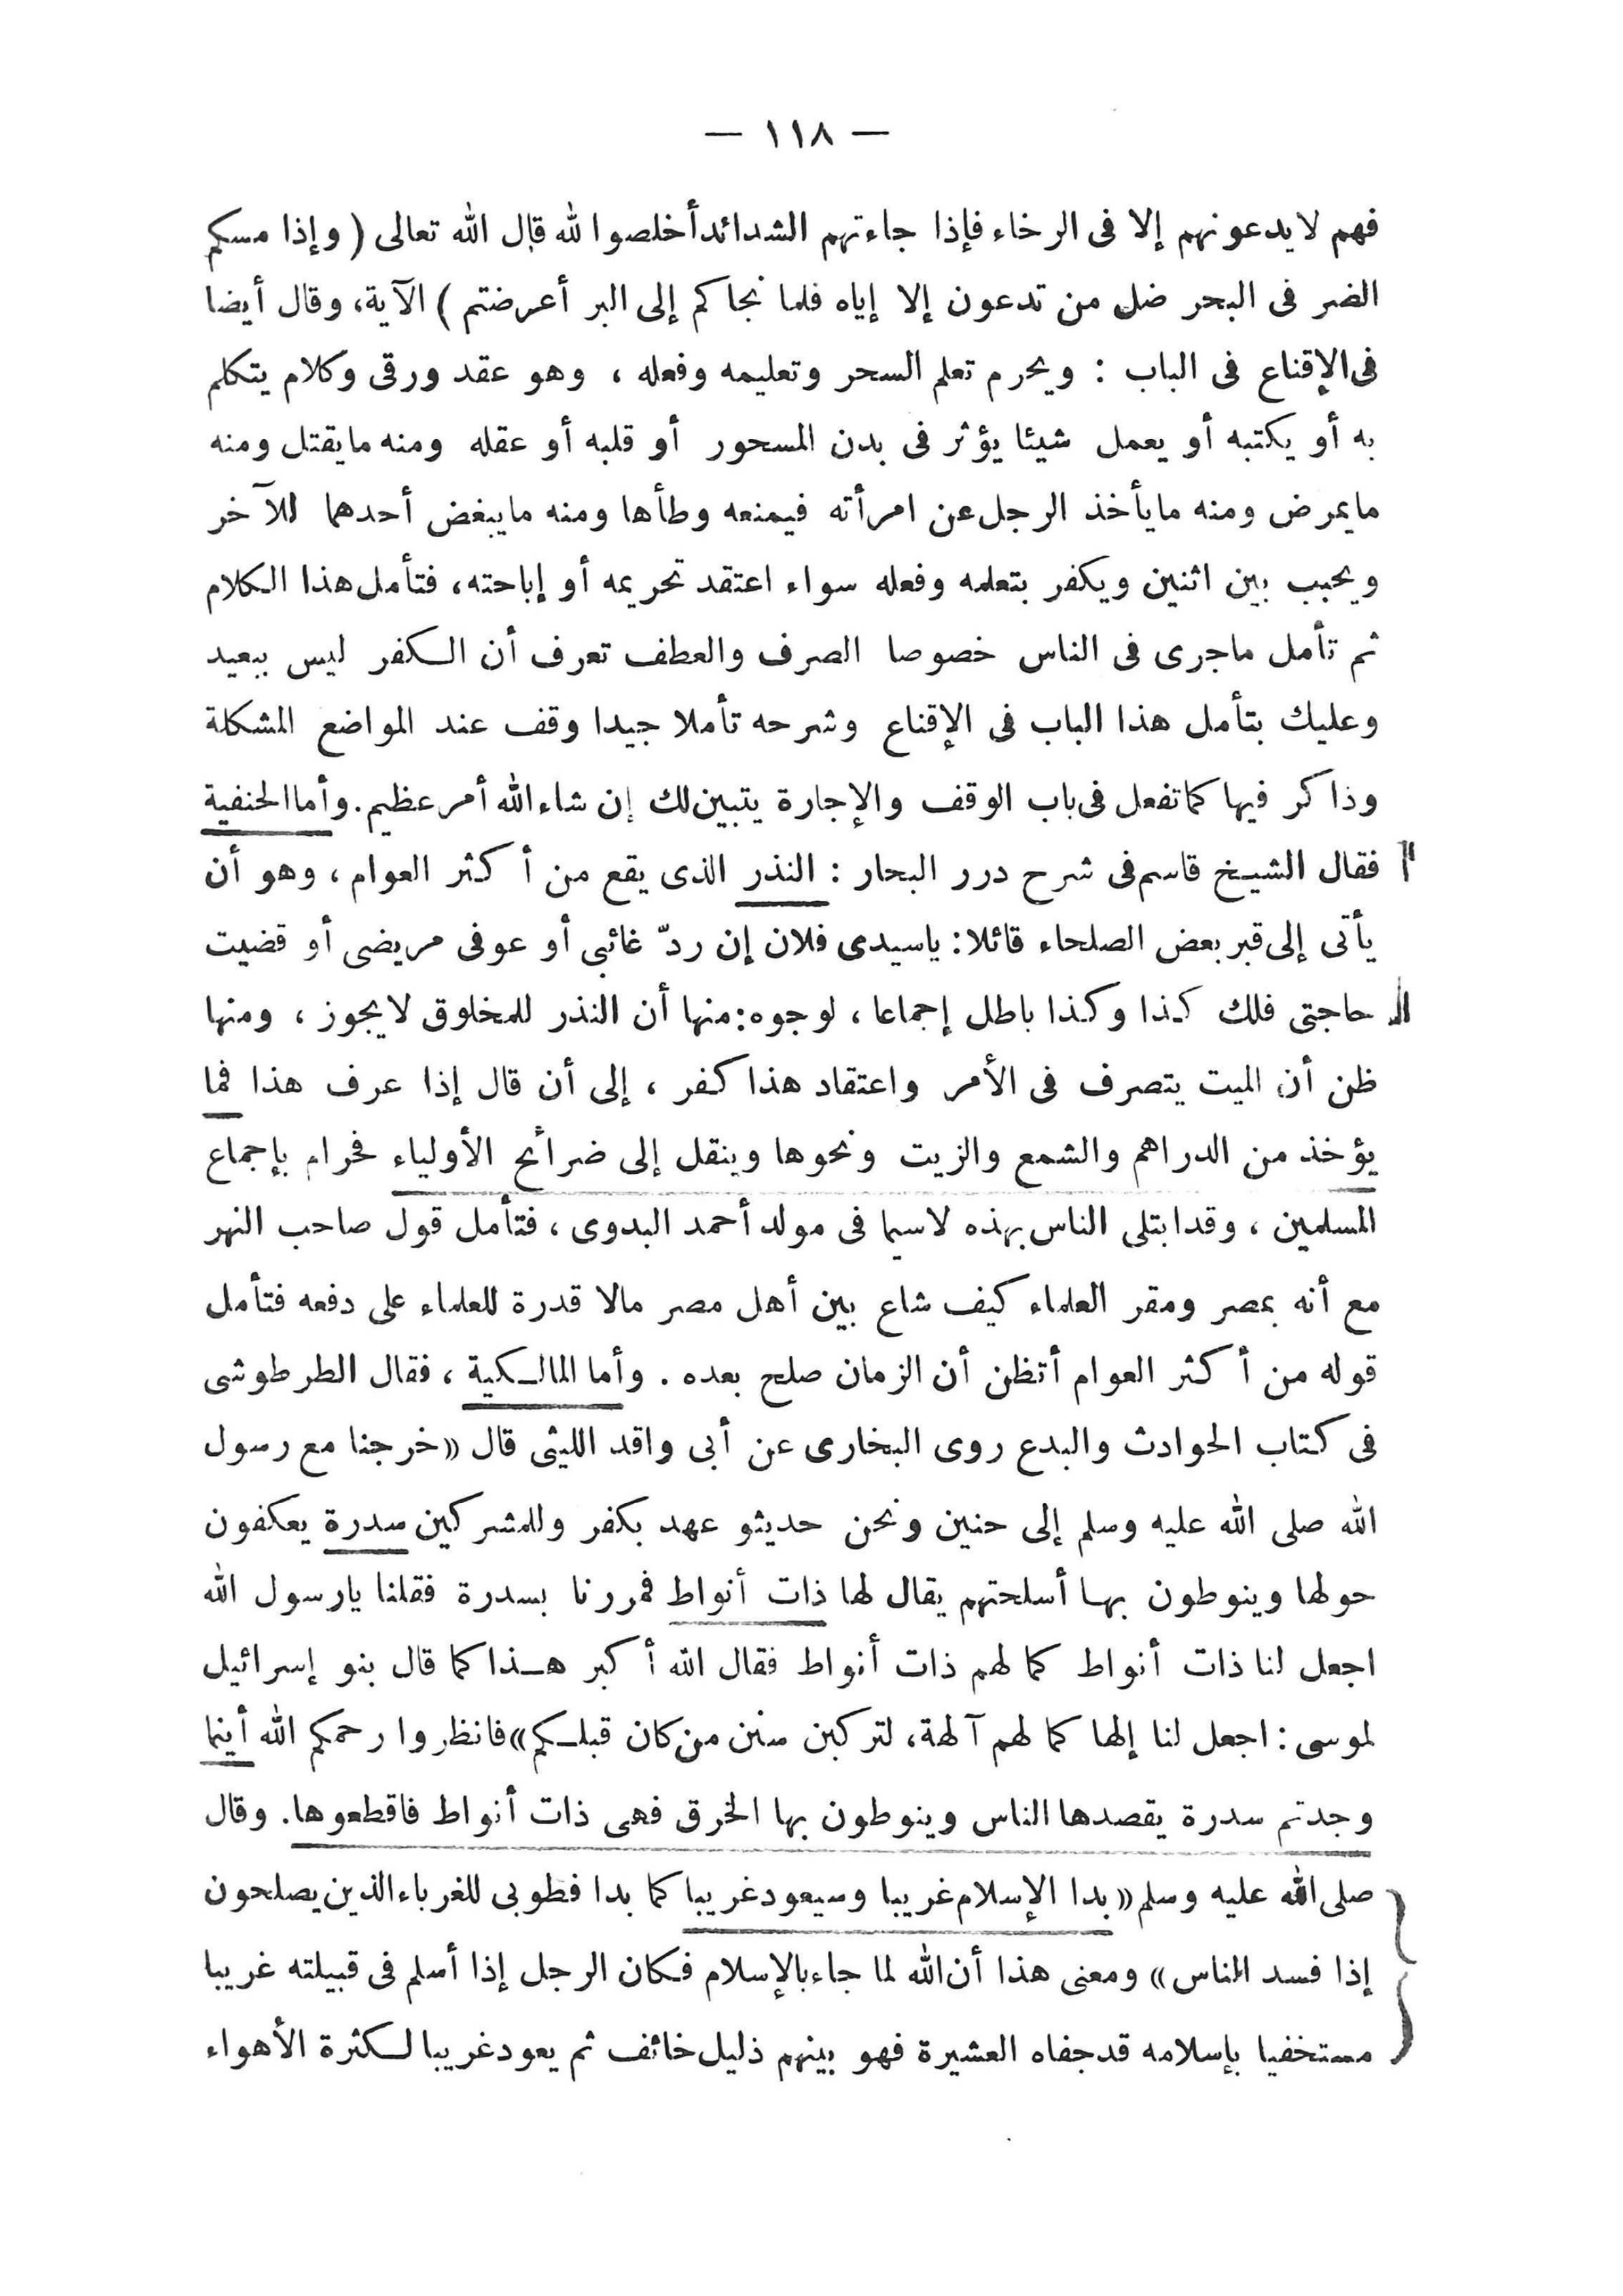 — ١١٨ —
فهم لا يدعونهم إلا فى الرخاء فإذا جاءتهم الشدائد أخلصوا لله قال الله تعالى ( وإذا مسكم
الضر فى البحر ضل من تدعون إلا إياه فلما نجاكم إلى البر أعرضتم ) الآية، وقال أيضا
فى الإقناع فى الباب : ويحرم تعلم السحر وتعليمه وفعله ، وهو عقد ورقى وكلام يتكلم
به أو يكتبه أو يعمل شيئا يؤثر فى بدن المسحور أو قلبه أو عقله ومنه ما يقتل ومنه
ما يمرض ومنه ما يأخذ الرجل عن امرأته فيمنعه وطأها ومنه ما يبغض أحدهما للآخر
ويحبب بين اثنين ويكفر بتعلمه وفعله سواء اعتقد تحريمه أو إباحته، فتأمل هذا الكلام
ثم تأمل ما جرى فى الناس خصوصا الصرف والعطف تعرف أن الكفر ليس ببعيد
وعليك بتأمل هذا الباب فى الإقناع وشرحه تأملا جيدا وقف عند المواضع المشكلة
وذاكر فيها كما تفعل فى باب الوقف والإجارة يتبين لك إن شاء الله أمر عظيم. وأما الحنفية
فقال الشيخ قاسم فى شرح درر البحار : النذر الذى يقع من أكثر العوام ، وهو أن
يأتى إلى قبر بعض الصلحاء قائلا: ياسيدى فلان إن ردّ غائبى أو عوفى مريضى أو قضيت
حاجتى فلك كذا وكذا باطل إجماعا ، لوجوه: منها أن النذر للمخلوق لا يجوز ، ومنها
ظن أن الميت يتصرف فى الأمر واعتقاد هذا كفر ، إلى أن قال إذا عرف هذا فما
يؤخذ من الدراهم والشمع والزيت ونحوها وينقل إلى ضرائح الأولياء فحرام بإجماع
المسلمين ، وقد ابتلى الناس بهذه لاسيما فى مولد أحمد البدوى ، فتأمل قول صاحب النهر
مع أنه بمصر ومقر العلماء كيف شاع بين أهل مصر مالا قدرة للعلماء على دفعه فتأمل
قوله من أكثر العوام أتظن أن الزمان صلح بعده . وأما المالكية ، فقال الطرطوشى
فى كتاب الحوادث والبدع روى البخارى عن أبى واقد الليثى قال «خرجنا مع رسول
الله صلى الله عليه وسلم إلى حنين ونحن حديثو عهد بكفر وللمشركين سدرة يعكفون
حولها وينوطون بها أسلحتهم يقال لها ذات أنواط فمررنا بسدرة فقلنا يارسول الله
اجعل لنا ذات أنواط كما لهم ذات أنواط فقال الله أكبر هذا كما قال بنو إسرائيل
لموسى : اجعل لنا إلها كما لهم آلهة، لتركبن سنن من كان قبلكم» فانظروا رحمكم الله أينما
وجدتم سدرة يقصدها الناس وينوطون بها الخرق فهى ذات أنواط فاقطعوها. وقال
صلى الله عليه وسلم «بدا الإسلام غريبا وسيعود غريبا كما بدا فطوبى للغرباء الذين يصلحون
إذا فسد الناس» ومعنى هذا أن الله لما جاء بالإسلام فكان الرجل إذا أسلم فى قبيلته غريبا
مستخفيا بإسلامه قد جفاه العشيرة فهو بينهم ذليل خائف ثم يعود غريبا لكثرة الأهواء